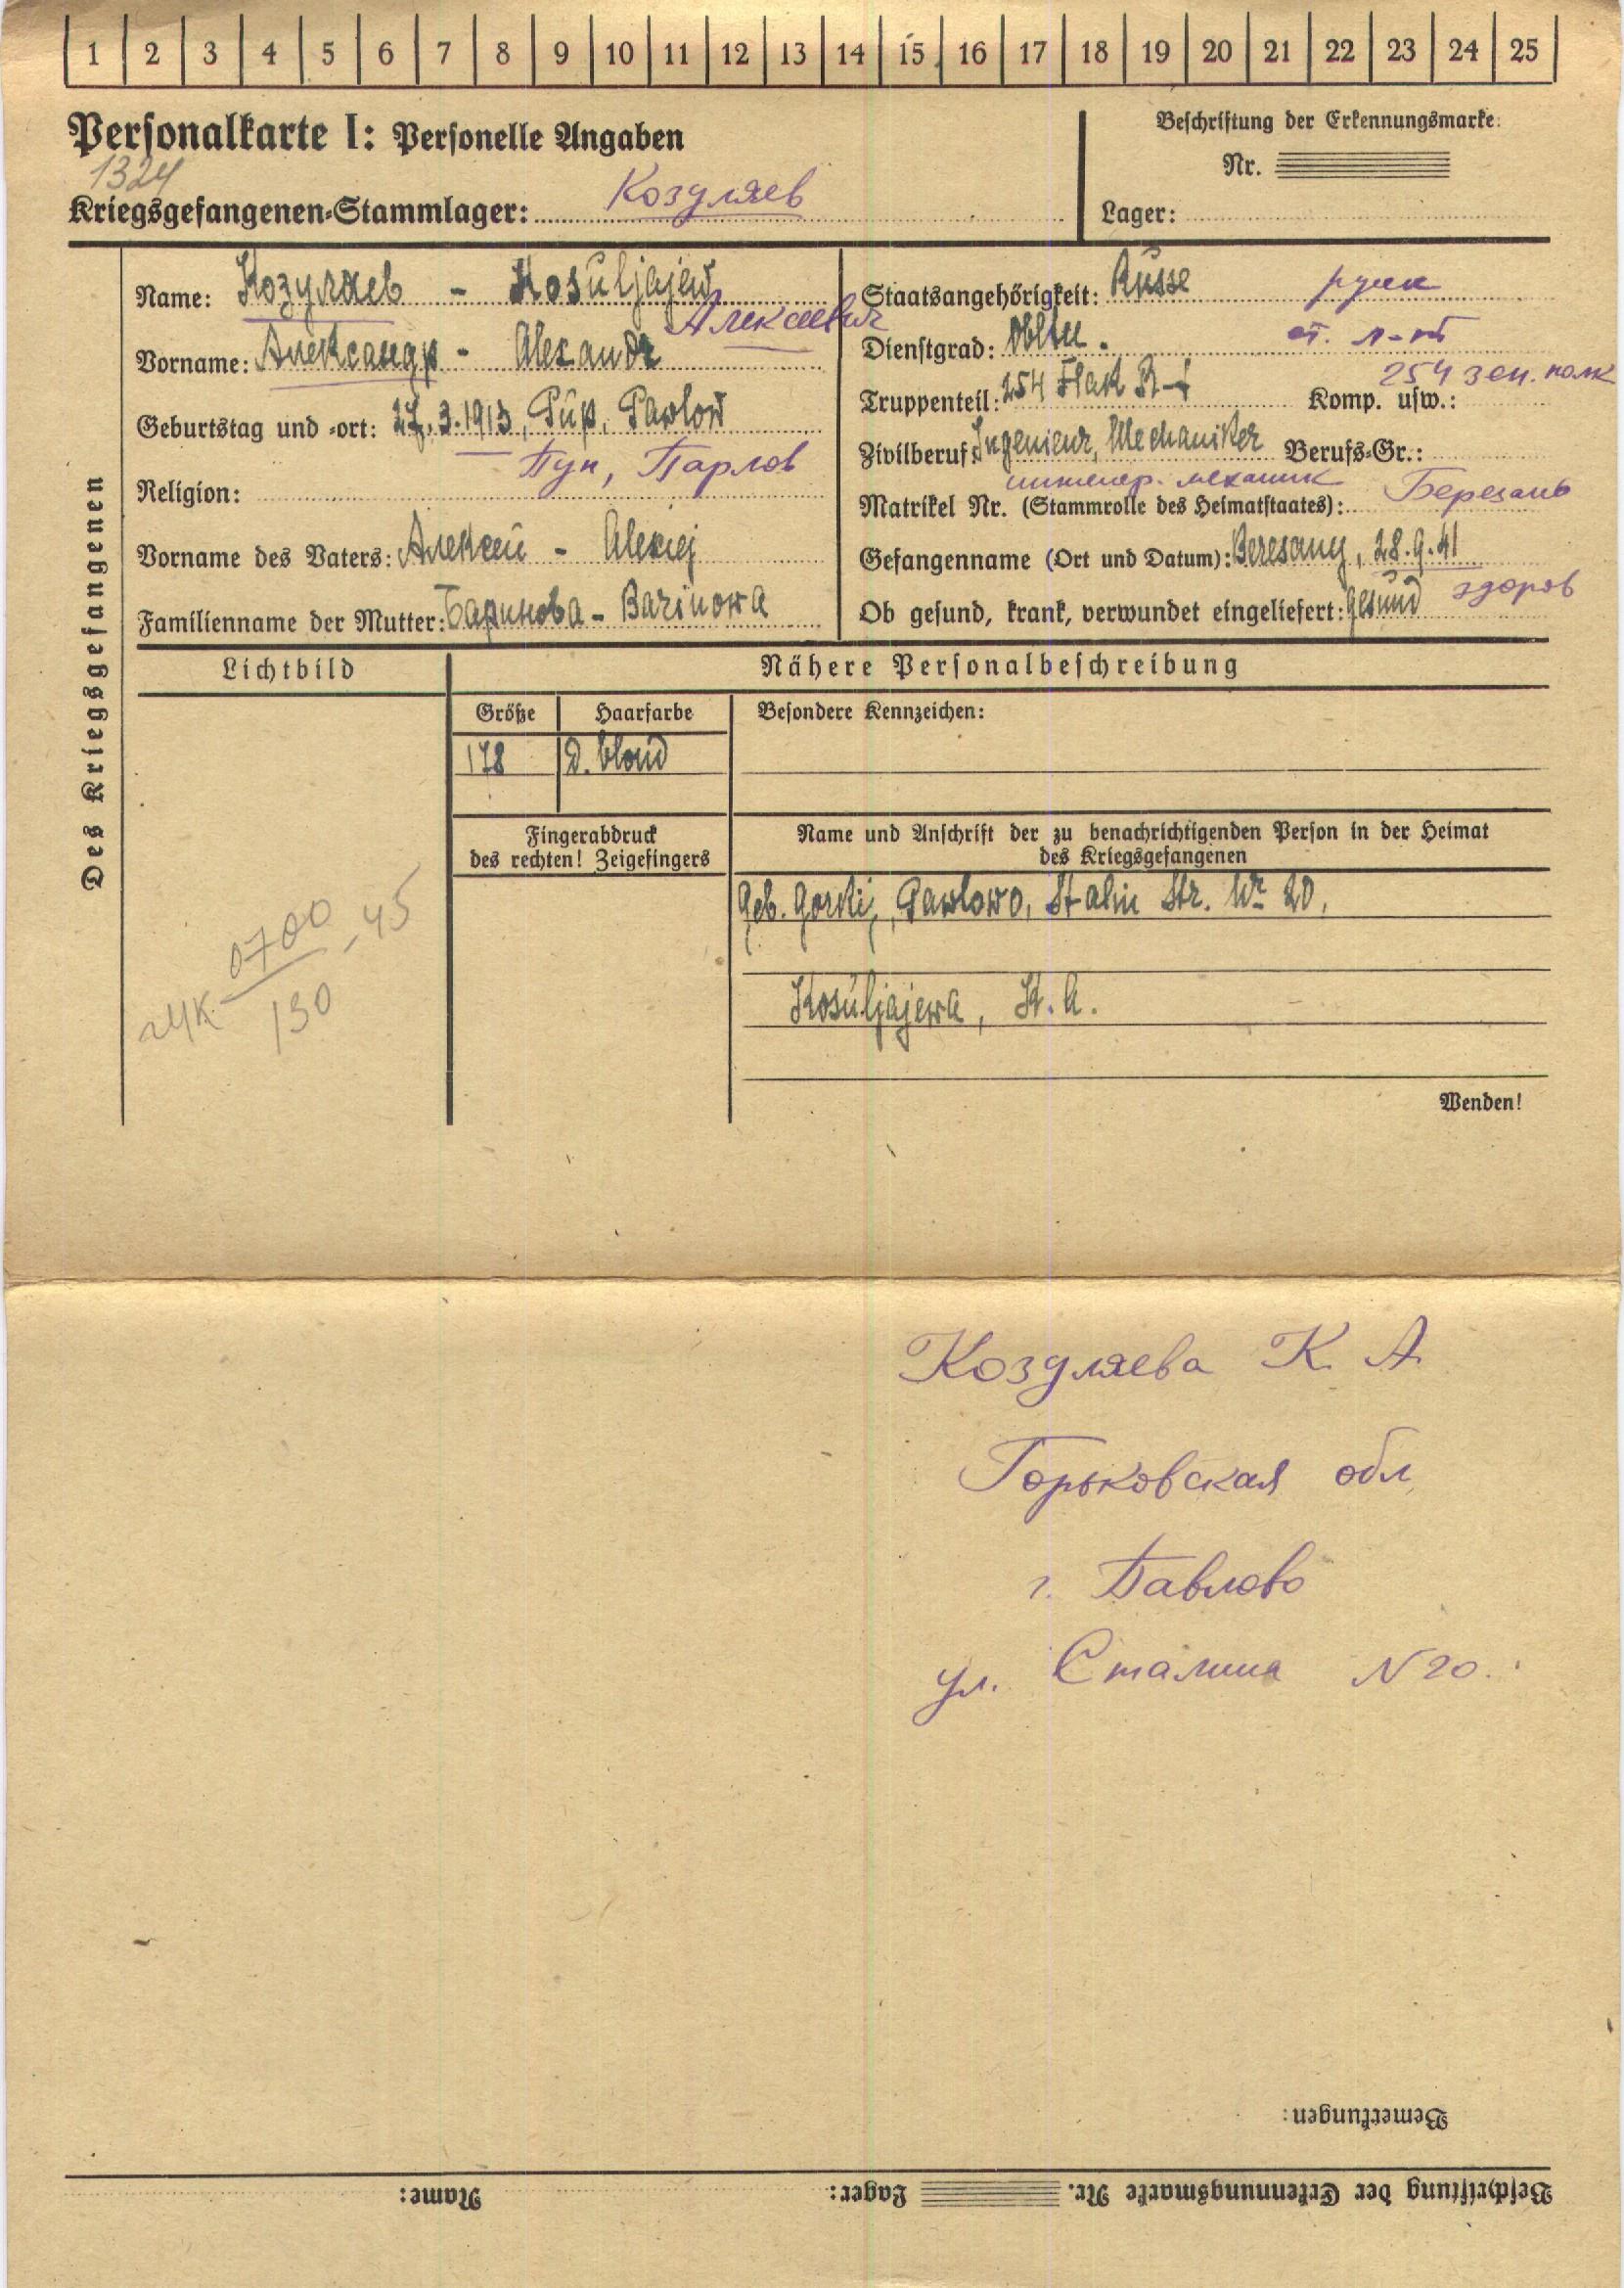 1 2 3 4 5 6 7 8 9 10 11 12 13 14 15 16 17 18 19 20 21 22 23 24 25
Personalkarte I: Personelle Angaben
Beschriftung der Erkennungsmarke:
1324
Nr.
Kriegsgefangenen-Stammlager: Козуляев
Lager:
Des Kriegsgefangenen
Name: Козуляев - Kosuljajew
Алексеевич
Vorname: Александр - Alexandr
Geburtstag und -ort: 27.3.1913, Pup, Pawlow
Пуп, Парлов
Religion:
Vorname des Vaters: Алексей - Alexiej
Familienname der Mutter: Баринова - Barinowa
Staatsangehörigkeit: Russe русск
Dienstgrad: Obltn. ст. л-нт
254 зен. полк
Truppenteil: 254 Flak R-t Komp. usw.:
Zivilberuf: Ingenieur, Mechaniker Berufs-Gr.:
инженер. механик Березань
Matrikel Nr. (Stammrolle des Heimatstaates):
Gefangennahme (Ort und Datum): Beresany, 28.9.41
здоров
Ob gesund, krank, verwundet eingeliefert: Gesund
Lichtbild
Nähere Personalbeschreibung
Größe Haarfarbe Besondere Kennzeichen:
178 D. blond
Fingerabdruck
des rechten! Zeigefingers
Name und Anschrift der zu benachrichtigenden Person in der Heimat
des Kriegsgefangenen
Geb. Gorkij, Pawlowo, Stalin Str. Nr 20,
Kosuljajewa, K. A.
0700 -45
130
Wenden!
Козуляева К. А.
Горьковская обл
г. Павлово
ул. Сталина N 20.
Bemerkungen:
Beschriftung der Erkennungsmarke Nr. Lager: Name: